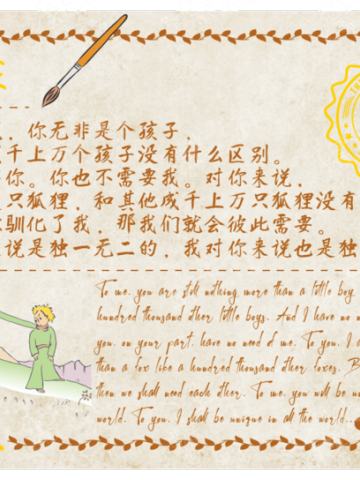 你无非是个孩子，
千上万个孩子没有什么区别。
你。你也不需要我。对你来说，
只狐狸，和其他成千上万只狐狸没有
驯化了我，那我们就会彼此需要。
说是独一无二的，我对你来说也是独
To me, you are still nothing more than a little boy
hundred thousand other little boys. And I have no
you, on your part, have no need of me. To you, I
than a fox like a hundred thousand other foxes. B
then we shall need each other. To me, you will be
world. To you, I shall be unique in all the world...